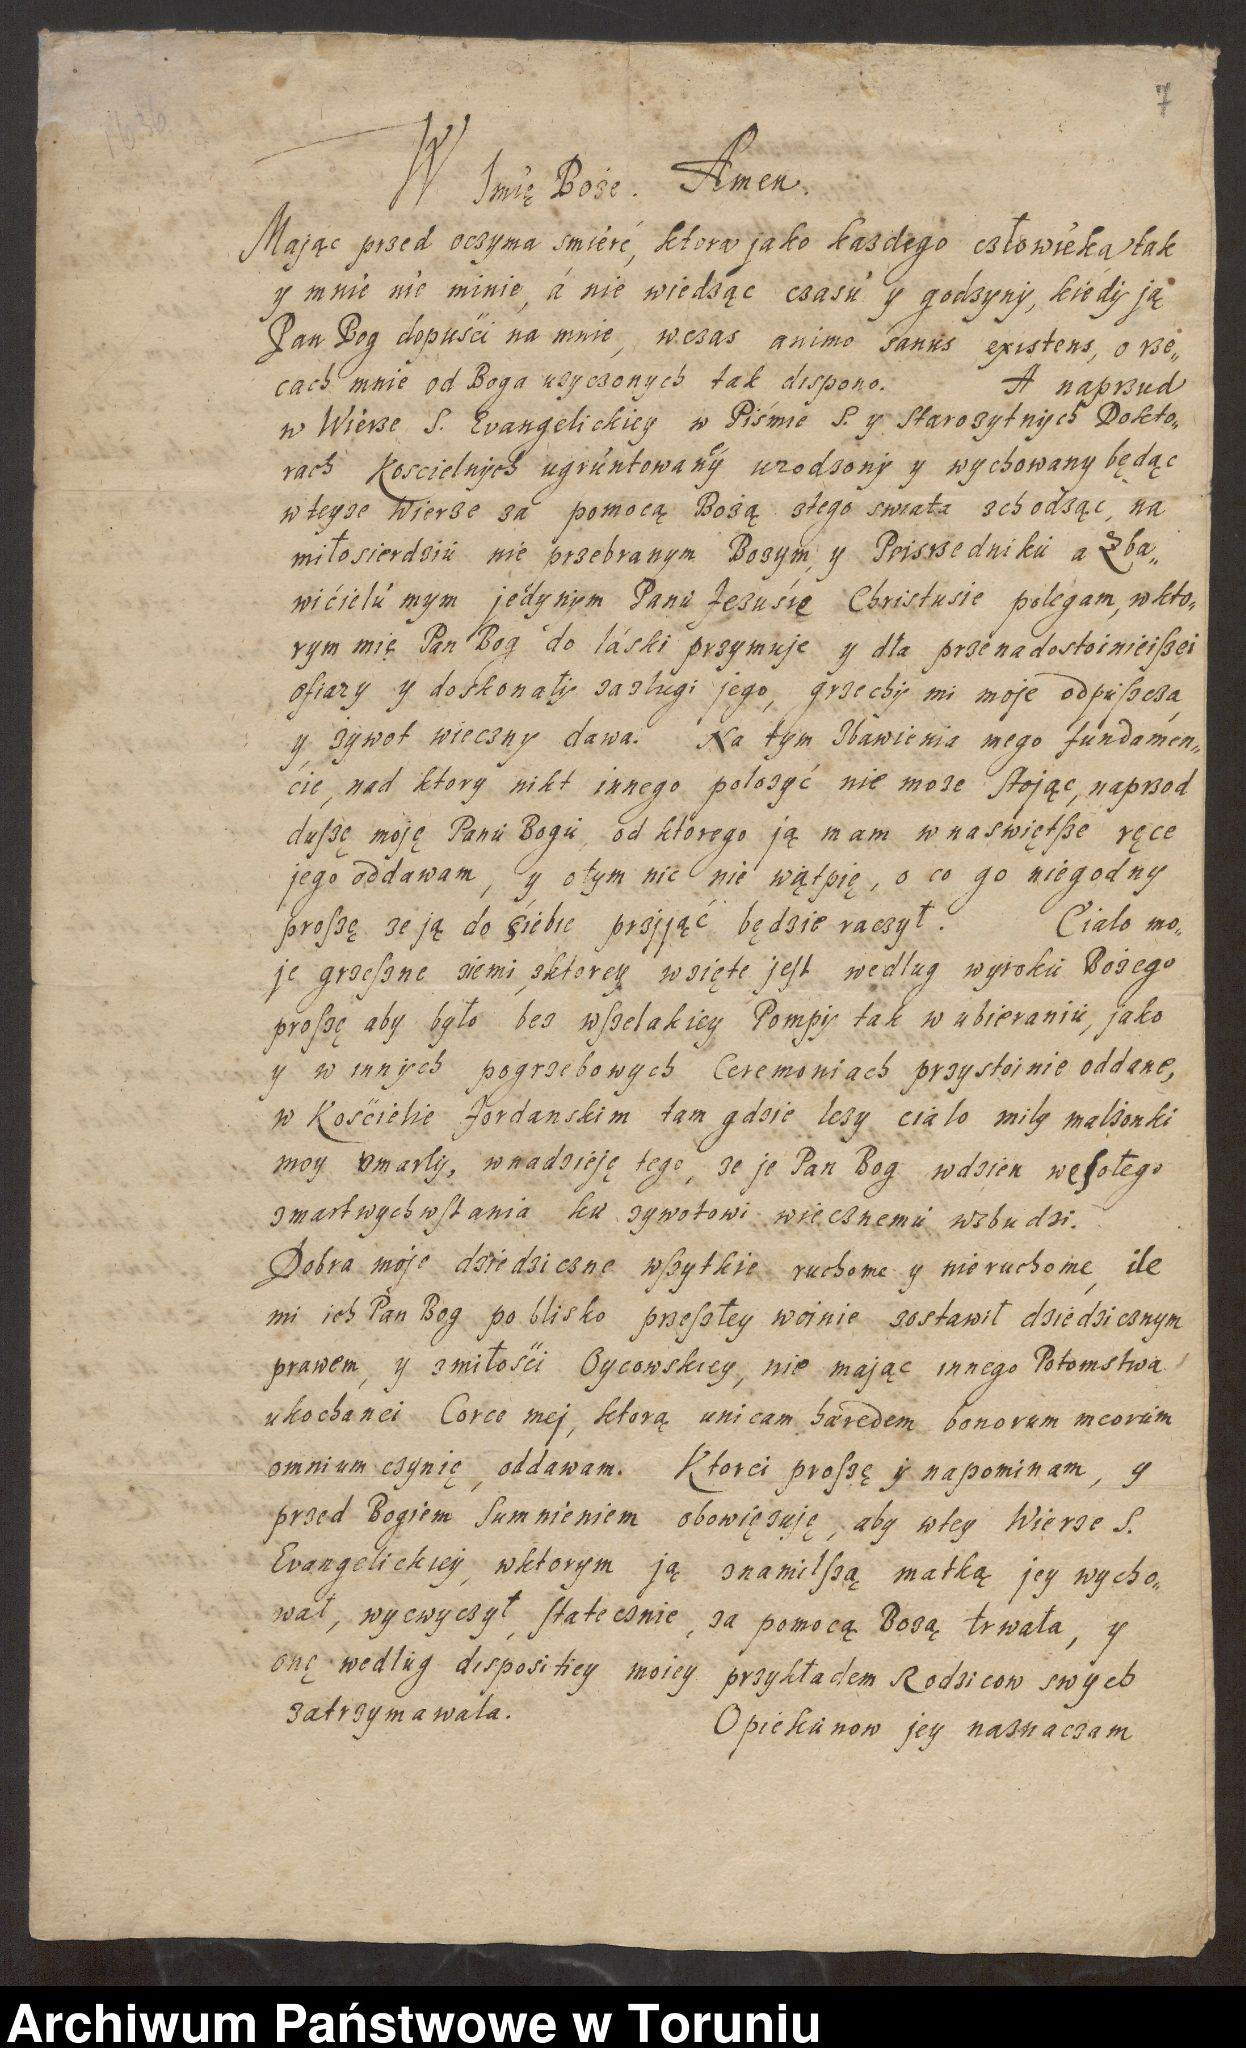 7
1636
W Imię Boże. Amen.
Mając przed oczyma smierć, ktora jako kazdego człowieka tak
y mnie nie minie, á nie wiedząc czasu y godzyny, kiedy ją
Pan Bog dopuści na mnie, wczas animo sanus existens, o rze„
cach mnie od Boga uzyczonych tak dispono. A naprzud
w Wierze S. Evangelickiey w Piśmie S. y Starozytnych Dokto„
rach Koscielnych ugruntowaney urodzony y wychowany będąc
wteyze Wierze za pomocą Bożą ztego swiata zchodząc, na
miłosierdziu nie przebranym Bozym, y Poiszedniku a Zba„
wićielu mym jedynym Panu Jezusie Christusie polegam, wkto„
rym mię Pan Bog do láski przymuje y dla przenadostoinieiszei
ofiary y doskonały zaslugi jego, grzechy mi moje odpuszcza,
y żywot wieczny dawa. Na tym Zbawienia mego fundamen„
cie, nad ktory nikt innego polozyć nie moze stojąc, naprzod
duszę moję Panu Bogu, od ktorego ją mam w naswiętsze ręce
jego oddawam, y otym nic nie wątpię, o co go niegodny
proszę ze ją do siebie przjąć będzie raczył. Cialo mo„
je grzeszne ziemi zktorey wzięte jest wedlug wyroku Bożego
proszę aby było bez wszelakiey Pompy tak w ubieraniu, jako
y w innych pogrzebowych Ceremoniach przystoinie oddane,
w Kościelie Jordanskim tam gdzie lezy cialo mily malżonki
moy zmarly, wnadzieję tego, ze je Pan Bog wdzien wesołego
zmartwychwstania ku zywotowi wiecznemu wzbudzi.
Dobra moje dziedziczne wszytkie ruchome y nieruchome, ile
mi ich Pan Bog po blisko przeszłey woinie zostawił dziedzicznym
prawem, y zmiłości Oycowskiey, nie mając innego Potomstwa
ukochanei Corce mej, ktorą unicam hæredem bonorum meorum
omnium czynię, oddawam. Ktorei proszę y napominam, y
przed Bogiem Sumnieniem obowięzuję, aby wtey Wierze S.
Evangelickiey, wktorym ją znamilszą matką jey wycho„
wał, wycwyczył, statecznie, za pomocą Bozą trwała, y
onę wedlug dispositiey moiey przykładem Rodzicow swych
zatrzymawala. Opiekunow jey naznaczam
Archiwum Państwowe w Toruniu